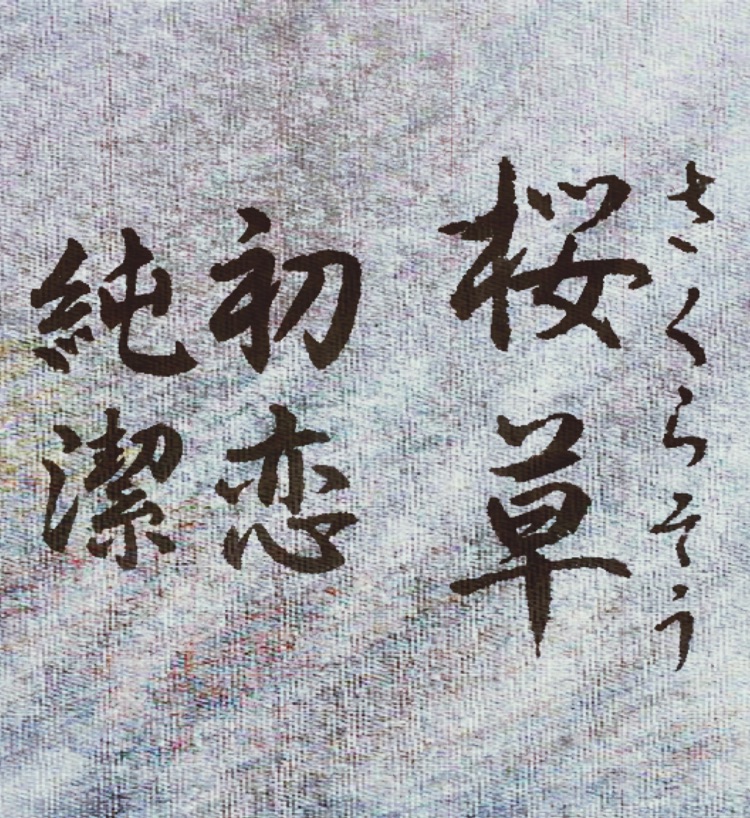 さくらそう
桜草
初恋
純潔